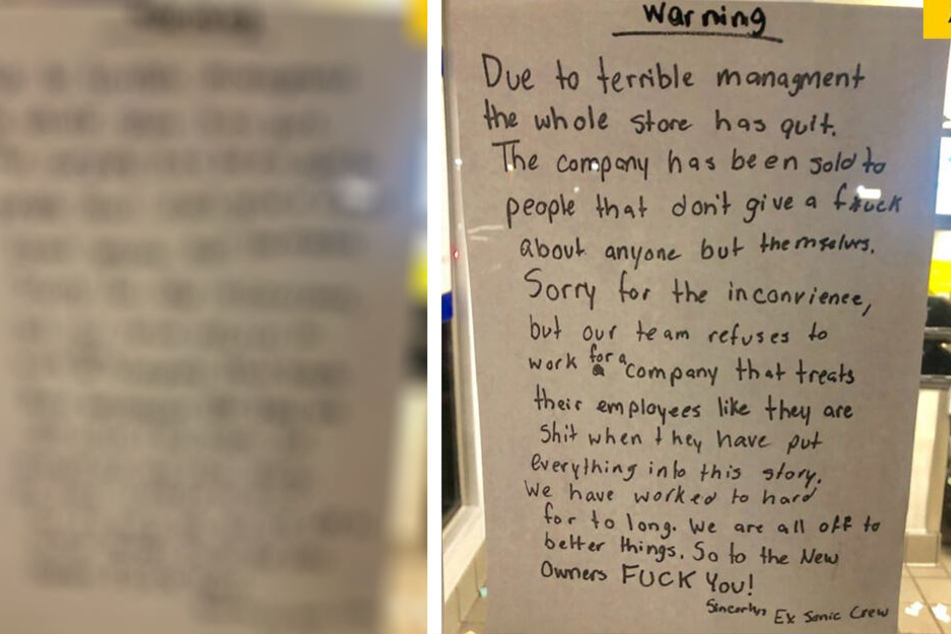 Warning
Due to terrible managment
the whole store has quit.
The company has been sold to
people that don't give a f*uck
about anyone but themselvs.
Sorry for the inconvience,
but our team refuses to
work for a company that treats
their employees like they are
shit when they have put
everything into this story.
We have worked to hard
for to long. We are all off to
better things. So to the New
Owners FUCK YOU!
Ex Sonic Crew